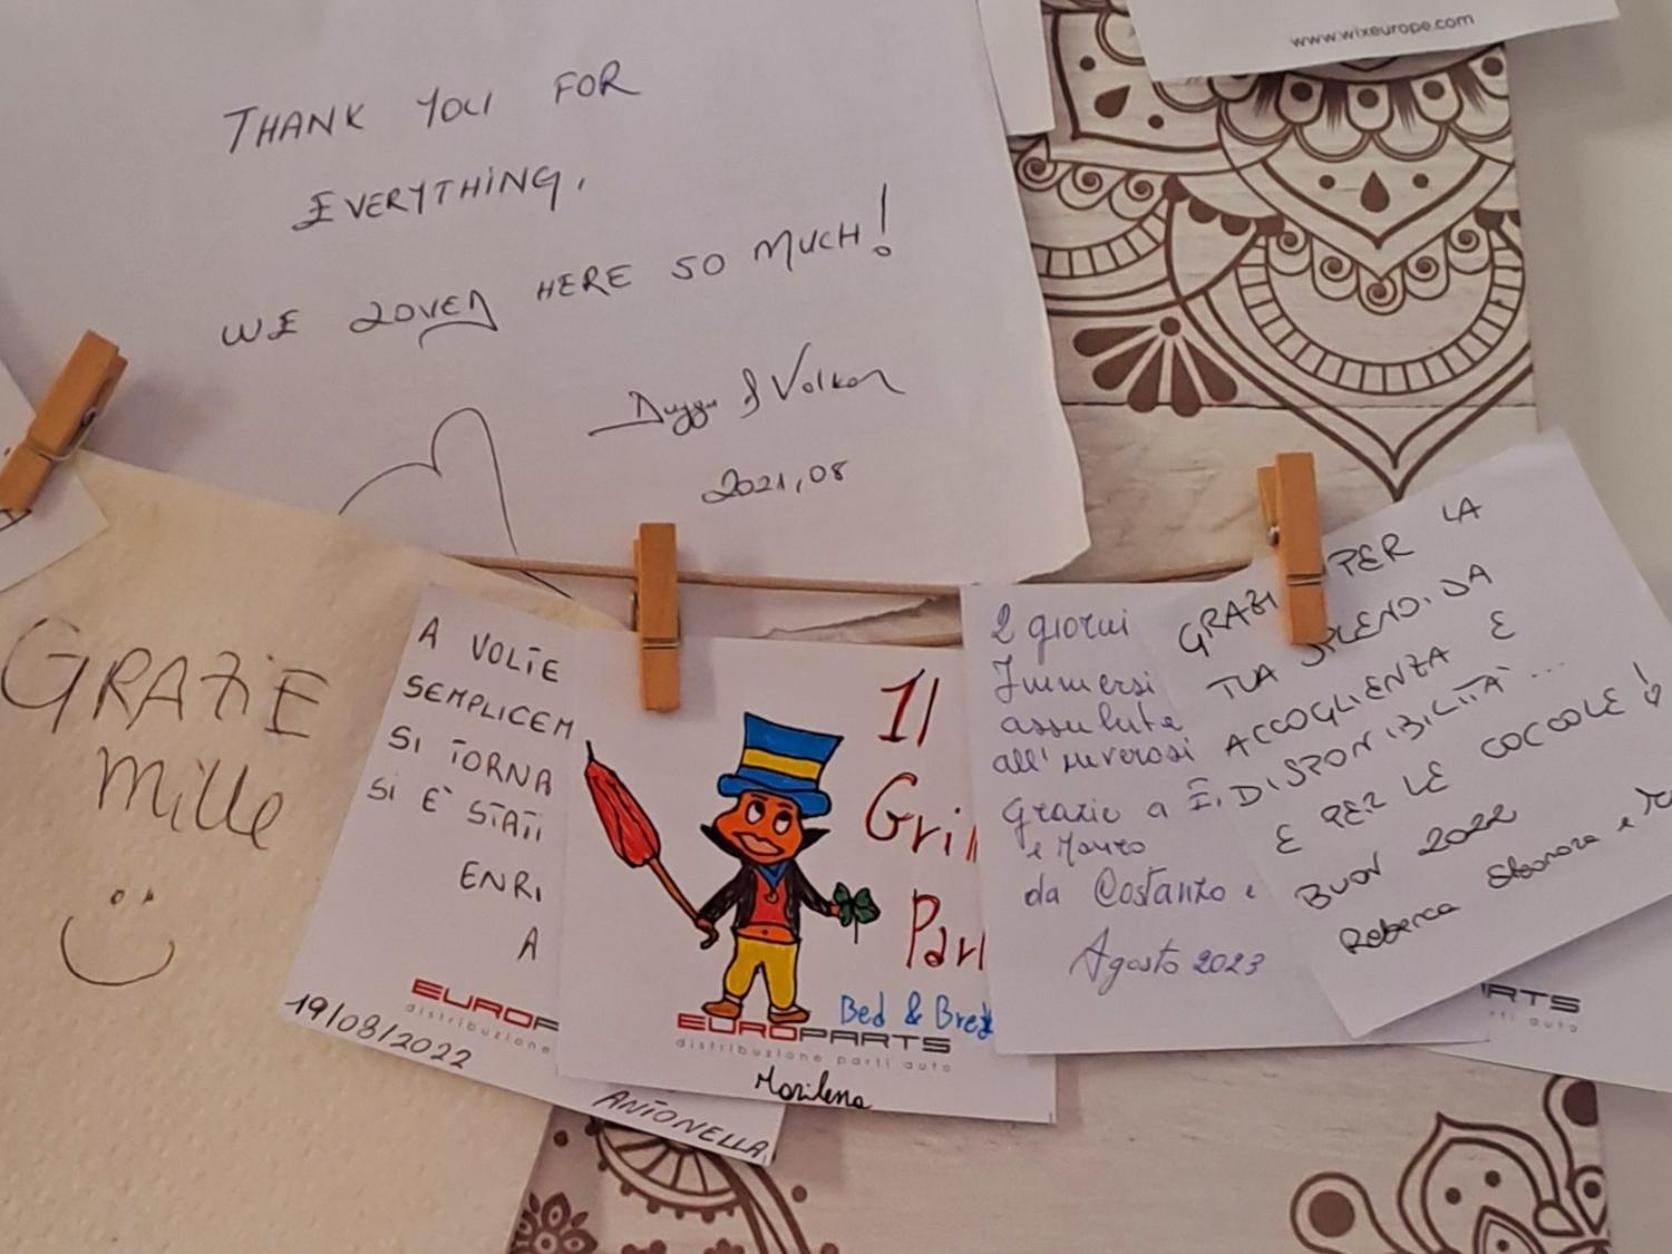 www.wixeurope.com
THANK YOU FOR
EVERYTHING,
WE LOVED HERE SO MUCH!
Duygu & Volkan
2021,08
GRAZIE
mille
A VOLTE
SEMPLICEM
SI TORNA
SI E' STATI
ENRI
A
EUROP
distribuzione
19/08/2022
ANTONELLA
Il
Gril
Parl
Bed & Break
EUROPARTS
distribuzione parti auto
Marilena
2 giorni
Immersi
assoluta
all'
Grazie a
e Mauro
da Costanzo e
Agosto 2023
GRAZI PER LA
TUA SPLENDIDA
ACCOGLIENZA E
DISPONIBILITÀ...
E PER LE COCCOLE!
BUON 2022
Rebecca Eleonora e
RTS
rti auto